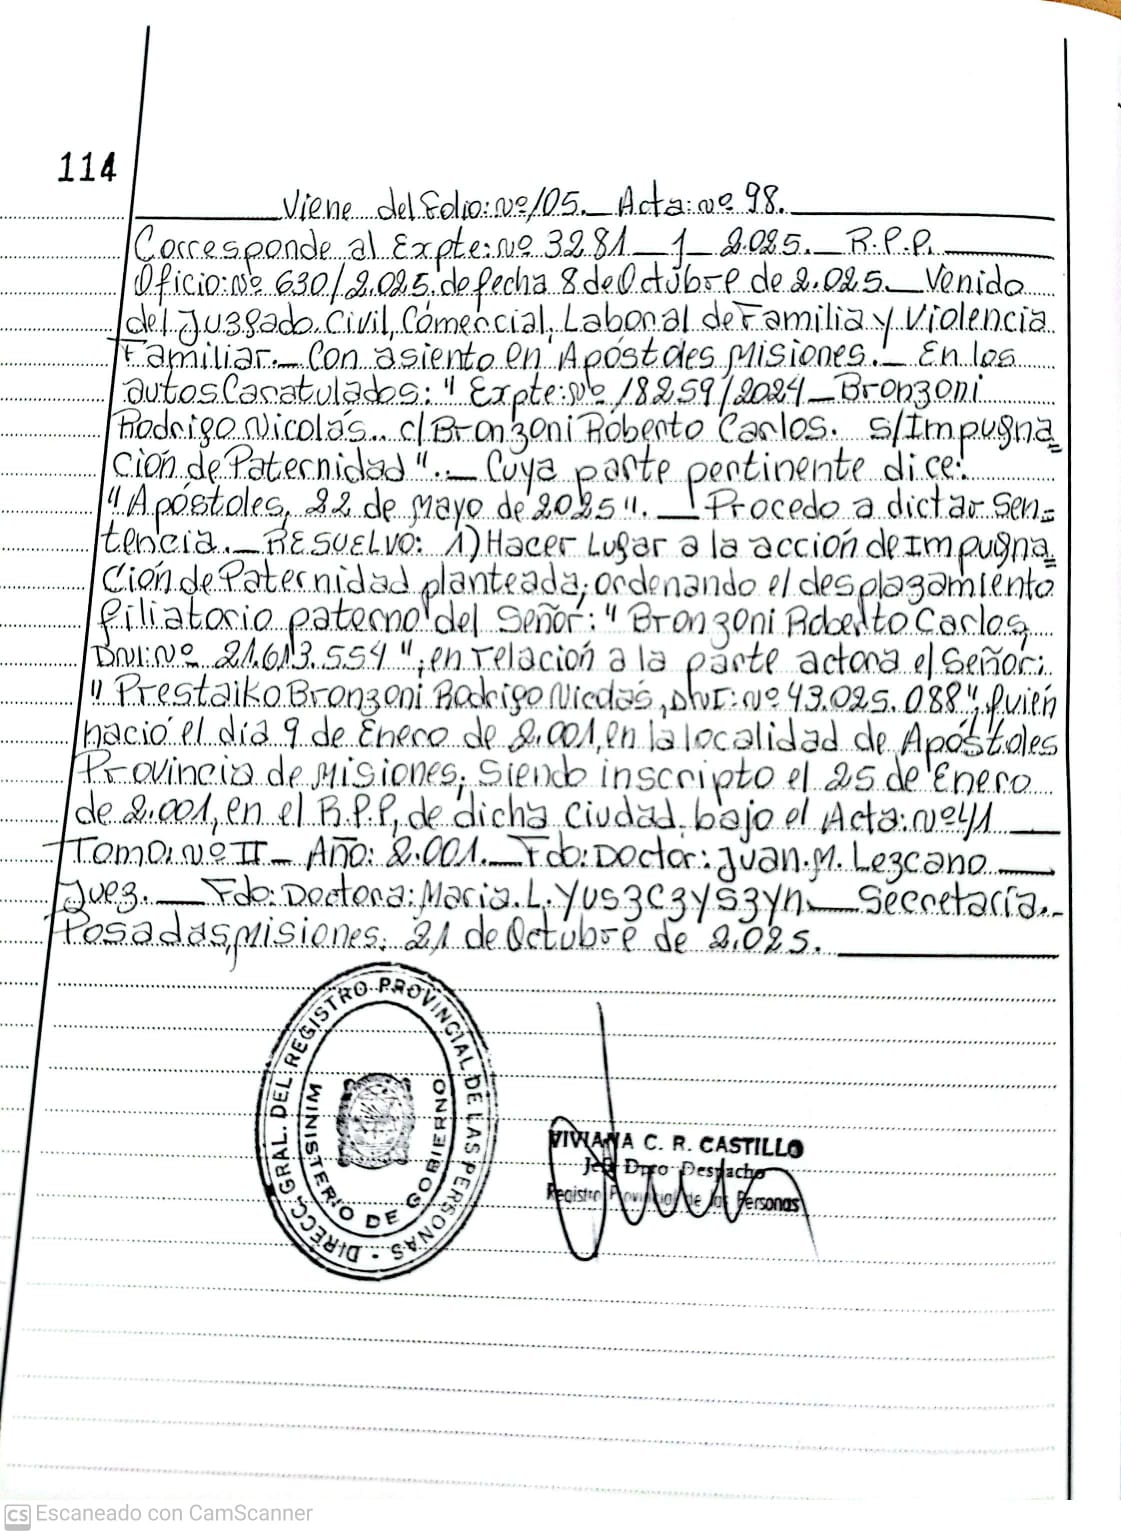 114
Viene del Folio: Nº 105. Acta: Nº 98.
Corresponde al Expte: Nº 3281 - J - 2.025. R.P.P.
Oficio: Nº 630/2.025. de fecha 8 de Octubre de 2.025. Venido
del Juzgado. Civil, Comercial, Laboral de Familia y Violencia
Familiar. Con asiento en Apóstoles Misiones. En los
autos Caratulados: "Expte: Nº 18259/2024 Bronzoni
Rodrigo Nicolás.. c/ Bronzoni Roberto Carlos. s/Impugna=
ción de Paternidad". Cuya parte pertinente dice:
"Apóstoles, 22 de Mayo de 2025". Procedo a dictar Sen=
tencia. RESUELVO: 1) Hacer Lugar a la acción de Impugna=
ción de Paternidad planteada; ordenando el desplazamiento
filiatorio paterno del Señor: "Bronzoni Roberto Carlos,
DNI: Nº 21.613.554", en relación a la parte actora el Señor:
"Prestaiko Bronzoni Rodrigo Nicolás, DNI: Nº 43.025.088", quién
nació el día 9 de Enero de 2.001, en la localidad de Apóstoles
Provincia de Misiones, Siendo inscripto el 25 de Enero
de 2.001, en el R.P.P, de dicha Ciudad, bajo el Acta: Nº 41
Tomo: Nº II - Año: 2.001. Fdo: Doctor: Juan. M. Lezcano
Juez. Fdo: Doctora: Maria. L. Yuszczyszyn. Secretaría.
Posadas, Misiones, 21 de Octubre de 2.025.
DIRECC. GRAL. DEL REGISTRO PROVINCIAL DE LAS PERSONAS
MINISTERIO DE GOBIERNO
VIVIANA C. R. CASTILLO
Jefe Dpto Despacho
Registro Provincial de las Personas
CS Escaneado con CamScanner